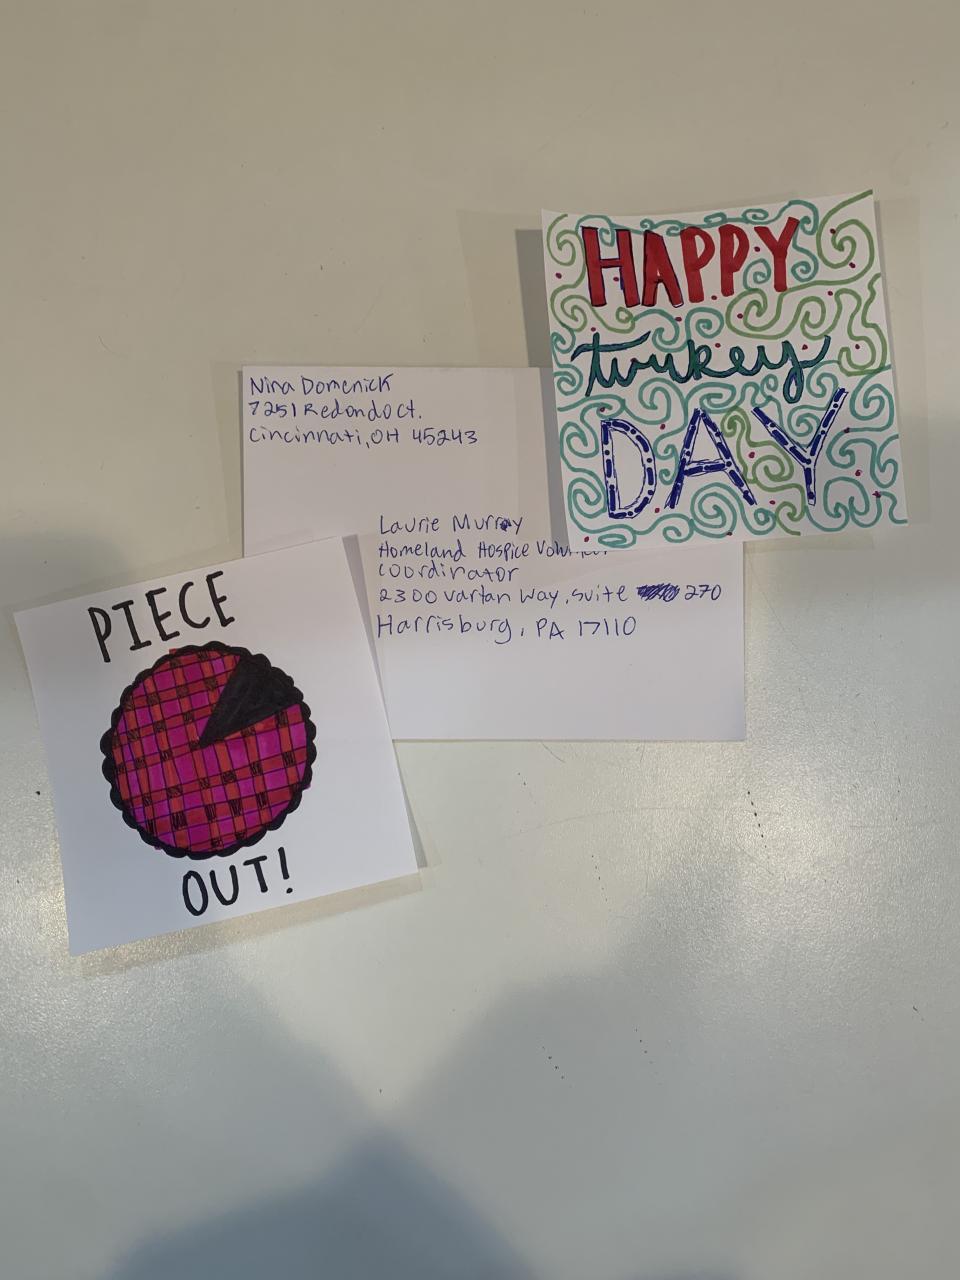 HAPPY
turkey
DAY
Nina Domenick
7251 Redondo ct.
Cincinnati, OH 45243
Laurie Murray
Homeland Hospice
coordinator
2300 Vartan Way, suite 270
Harrisburg, PA 17110
PIECE
OUT!